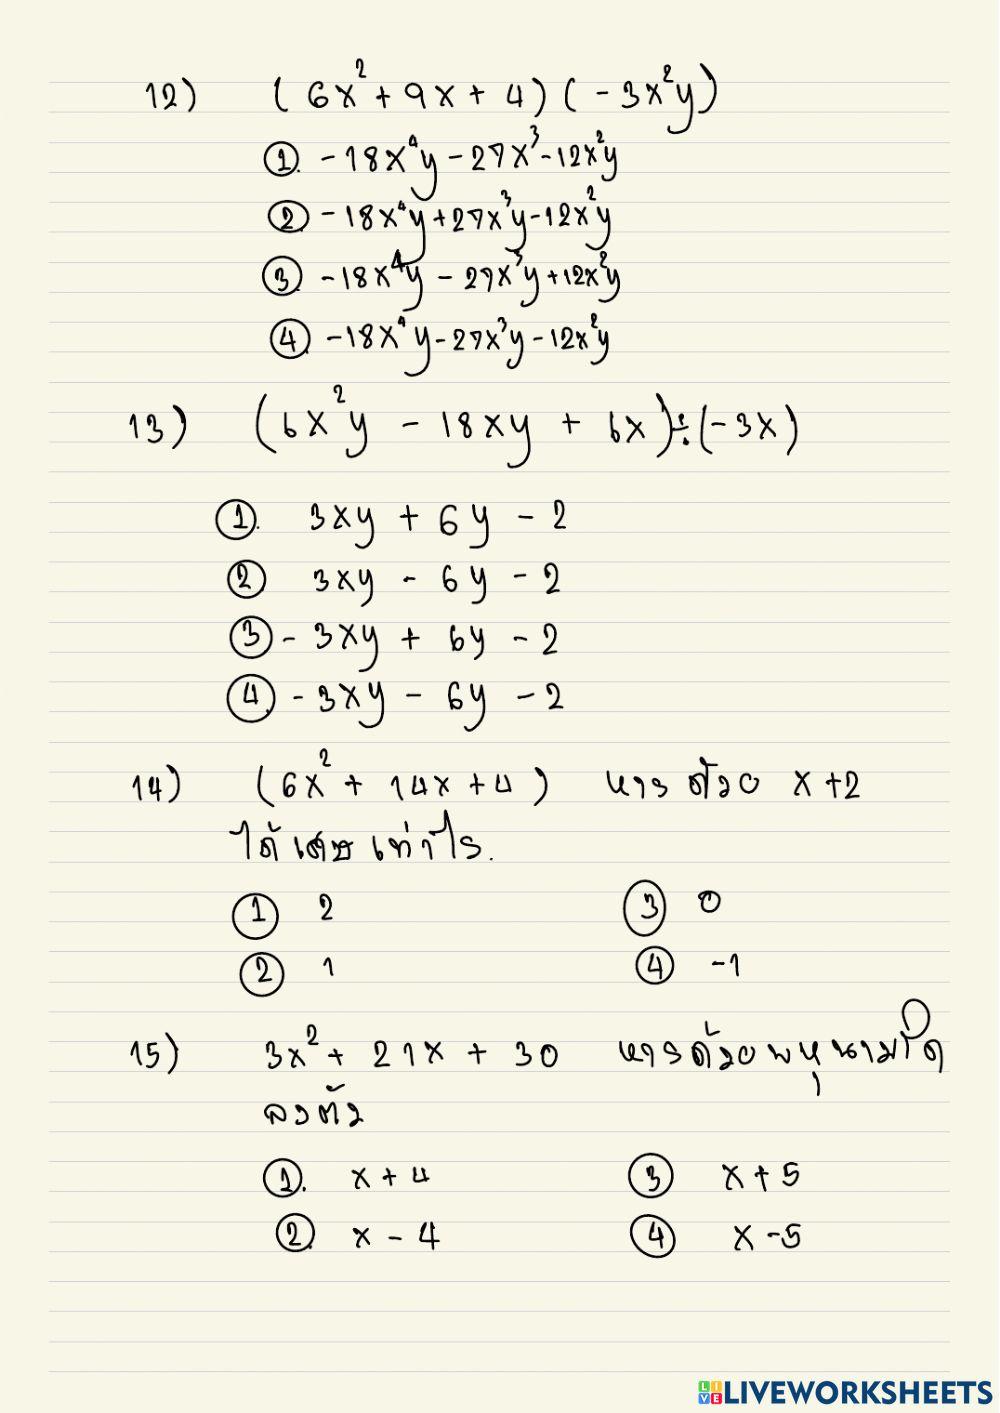 12) (6x² + 9x + 4)(-3x²y)
① -18x⁴y - 27x³ - 12x²y
② -18x⁴y + 27x³y - 12x²y
③ -18x⁴y - 27x³y + 12x²y
④ -18x⁴y - 27x³y - 12x²y
13) (6x²y - 18xy + 6x) ÷ (-3x)
①. 3xy + 6y - 2
② 3xy - 6y - 2
③ - 3xy + 6y - 2
④ - 3xy - 6y - 2
14) (6x² + 14x + 4) หารด้วย x + 2
ได้เศษเท่าไร.
① 2 ③ 0
② 1 ④ -1
15) 3x² + 21x + 30 หารด้วยพหุนามใด
ลงตัว
①. x + 4 ③ x + 5
② x - 4 ④ x - 5
LIVEWORKSHEETS